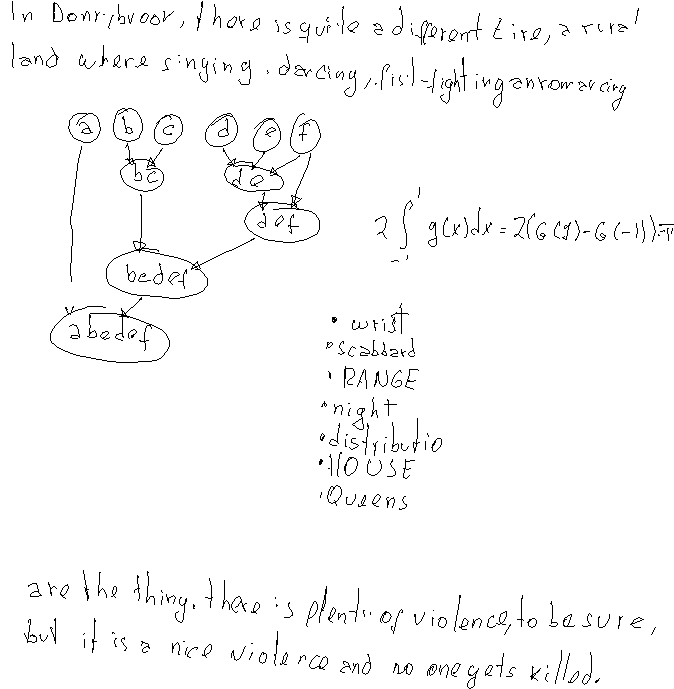 In Donnybroor, there is quite a different tire, a rural
land where singing, darcing, fist-fighting an romarcing
a b c d e f
bc de
def
bcdef
abcdef
2∫₋₁¹ g(x)dx = 2(G(1)-G(-1))=π
• wrist
• scabbard
• RANGE
• night
• distributio
• HOUSE
• Queens
are the thing. there is plenty of violence, to be sure,
but it is a nice violence and no one gets killed.